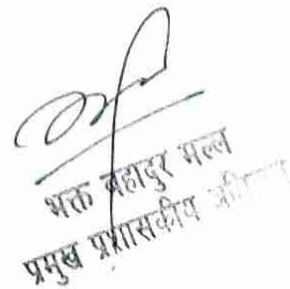 भक्त बहादुर मल्ल
प्रमुख प्रशासकीय